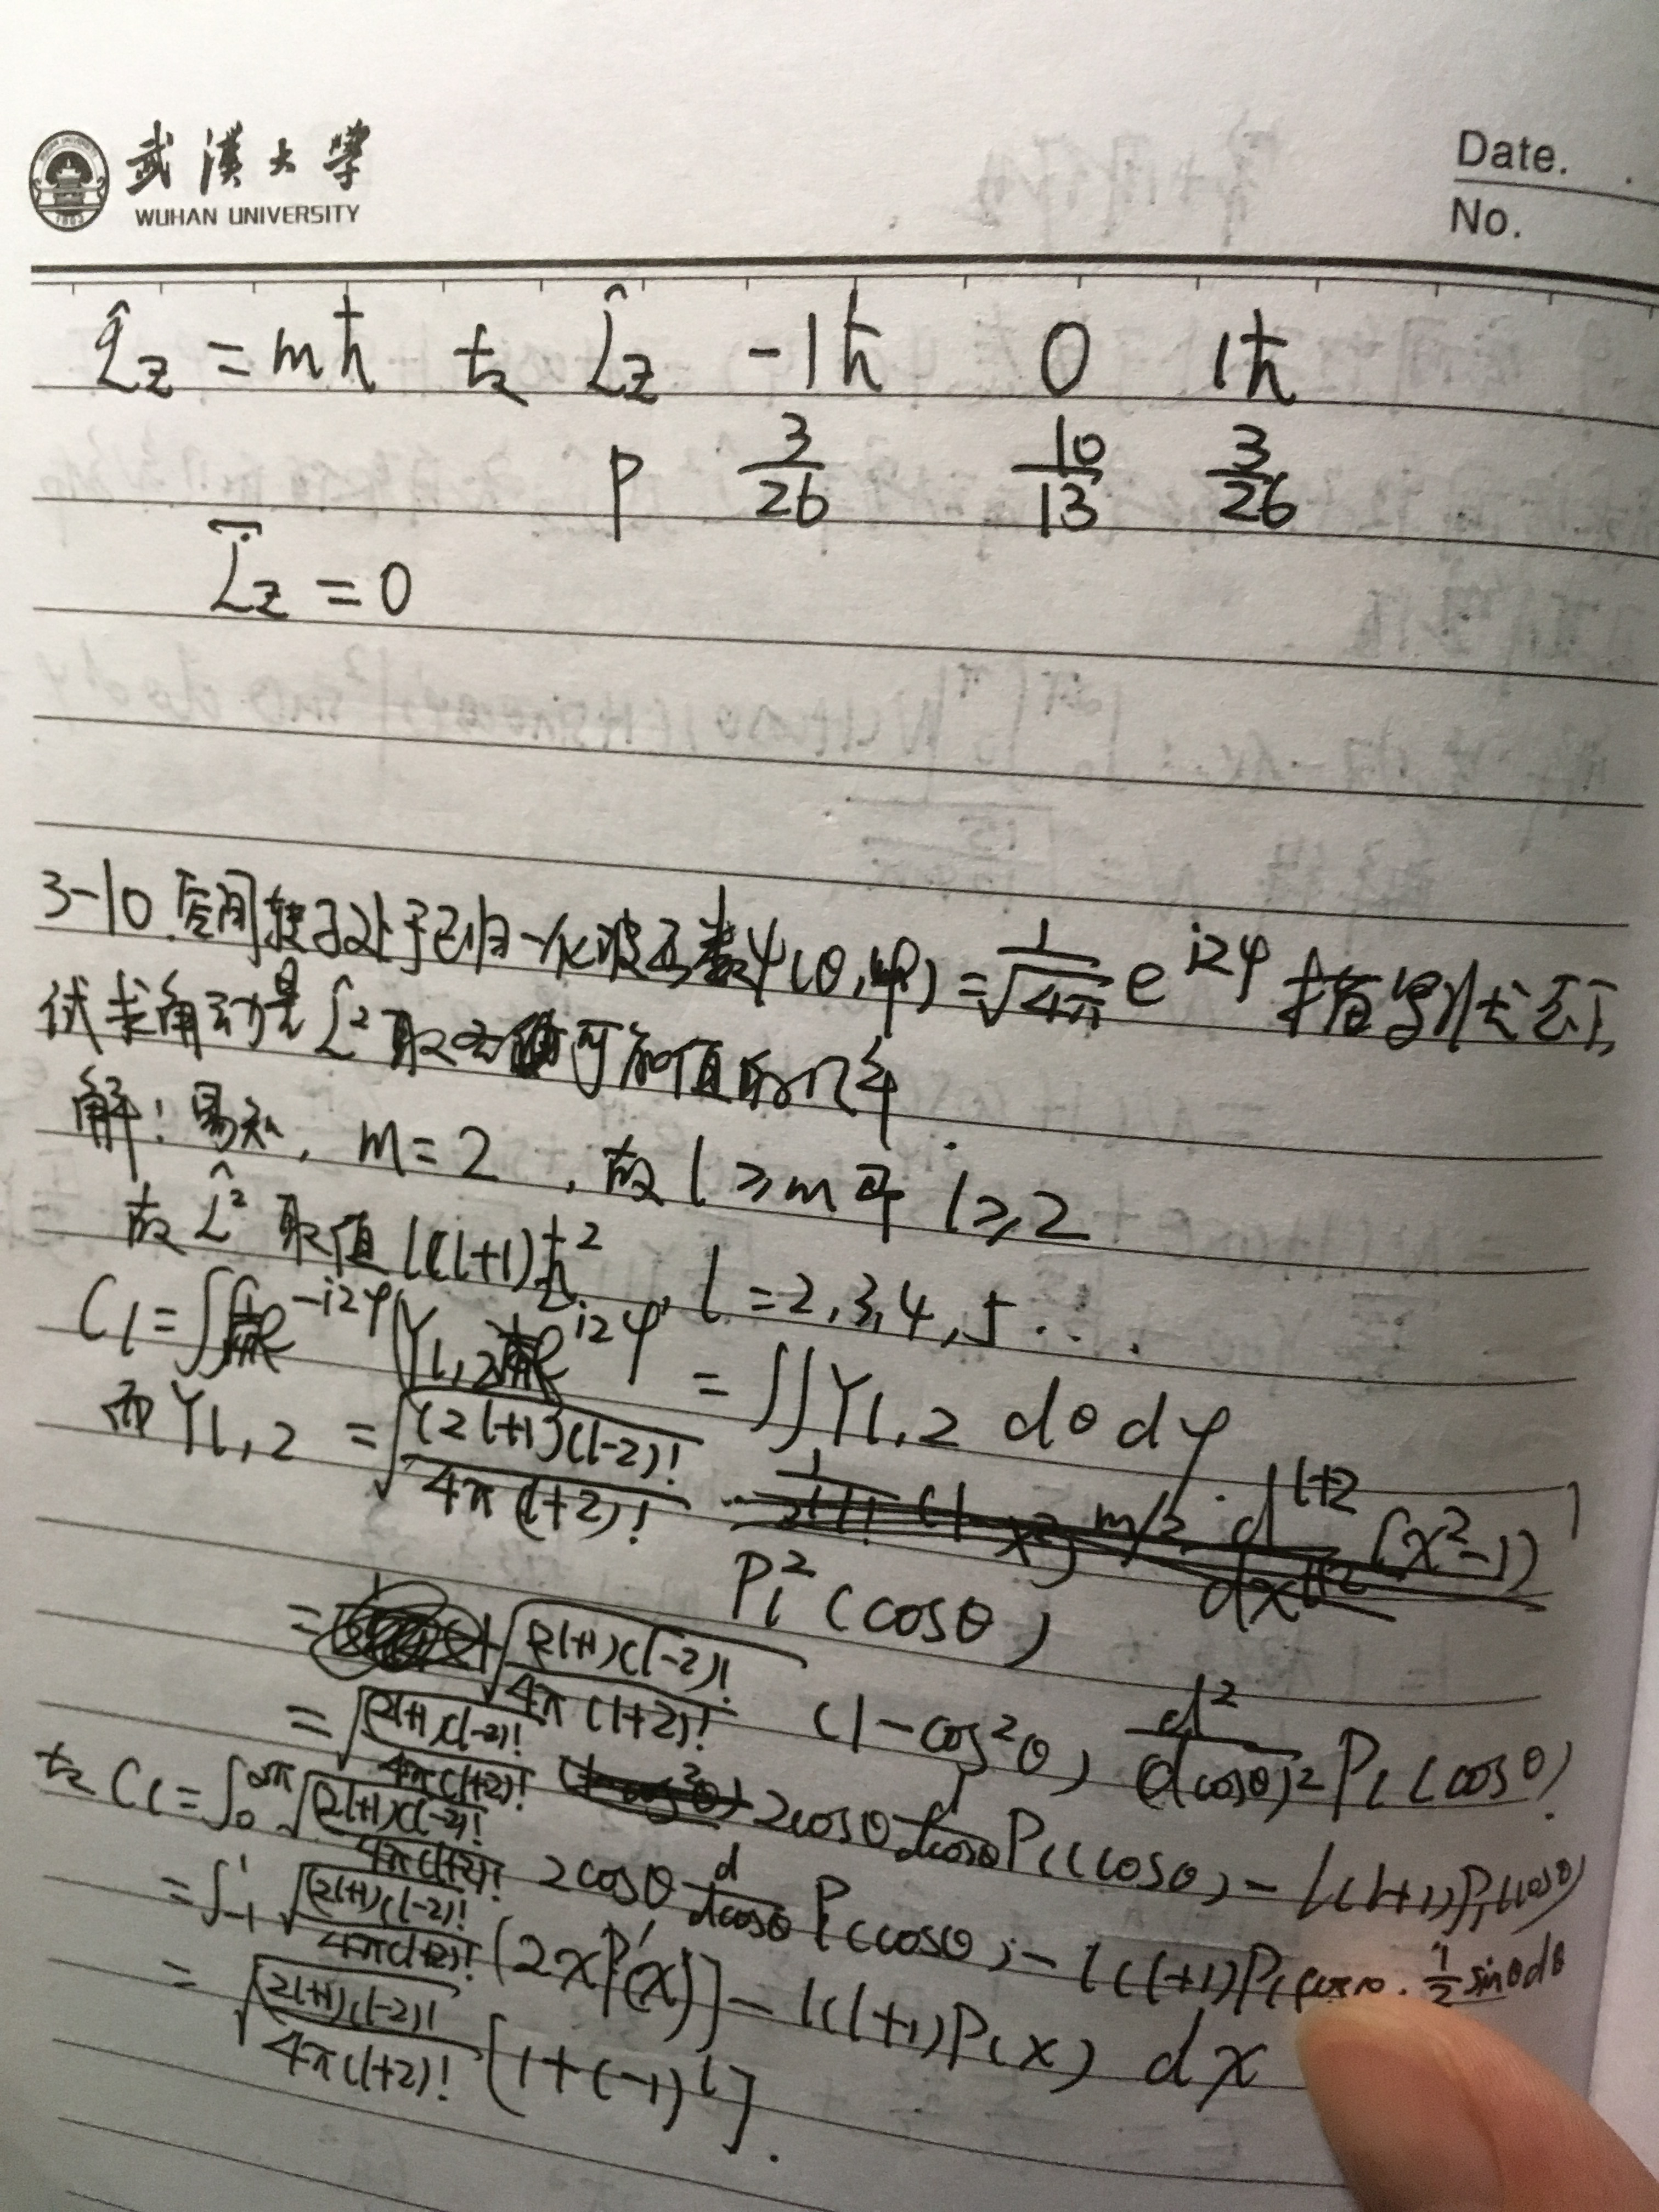 武漢大學
WUHAN UNIVERSITY
Date.
No.
L̂z = mħ 故 L̂z -1ħ 0 1ħ
P 3/26 10/13 3/26
L̄z = 0
3-10. 空间转子处于已归一化波函数ψ(θ,φ) = 1/√4π e^{i2φ} 描写状态下,
试求角动量 L̂² 取各可和值的几率.
解: 易知, m=2, 故 l≥m 即 l≥2
故 L̂² 取值 l(l+1)ħ², l=2,3,4,5...
C_l = ∬ e^{-i2φ} Y_{l,2} e^{i2φ} = ∬ Y_{l,2} dθdφ
而 Y_{l,2} = √((2l+1)(l-2)!/4π(l+2)!)
P_l²(cosθ)
= √((2l+1)(l-2)!/4π(l+2)!) (1-cos²θ) d²/(dcosθ)² P_l(cosθ)
= √((2l+1)(l-2)!/4π(l+2)!) 2cosθ d/dcosθ P_l(cosθ) - l(l+1)P_l(cosθ)
故 C_l = ∫₀^{2π} √((2l+1)(l-2)!/4π(l+2)!) 2cosθ d/dcosθ P_l(cosθ) - l(l+1)P_l · 1/2 sinθdθ
= ∫₋₁¹ √((2l+1)(l-2)!/4π(l+2)!) (2xP'(x)] - l(l+1)P(x) dx
= √((2l+1)(l-2)!/4π(l+2)!) [1+(-1)^l].